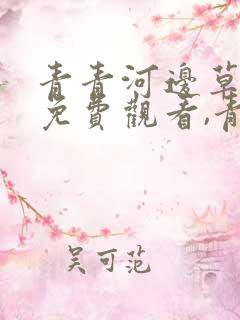 青青河邊草
免費觀看,青
吴可范